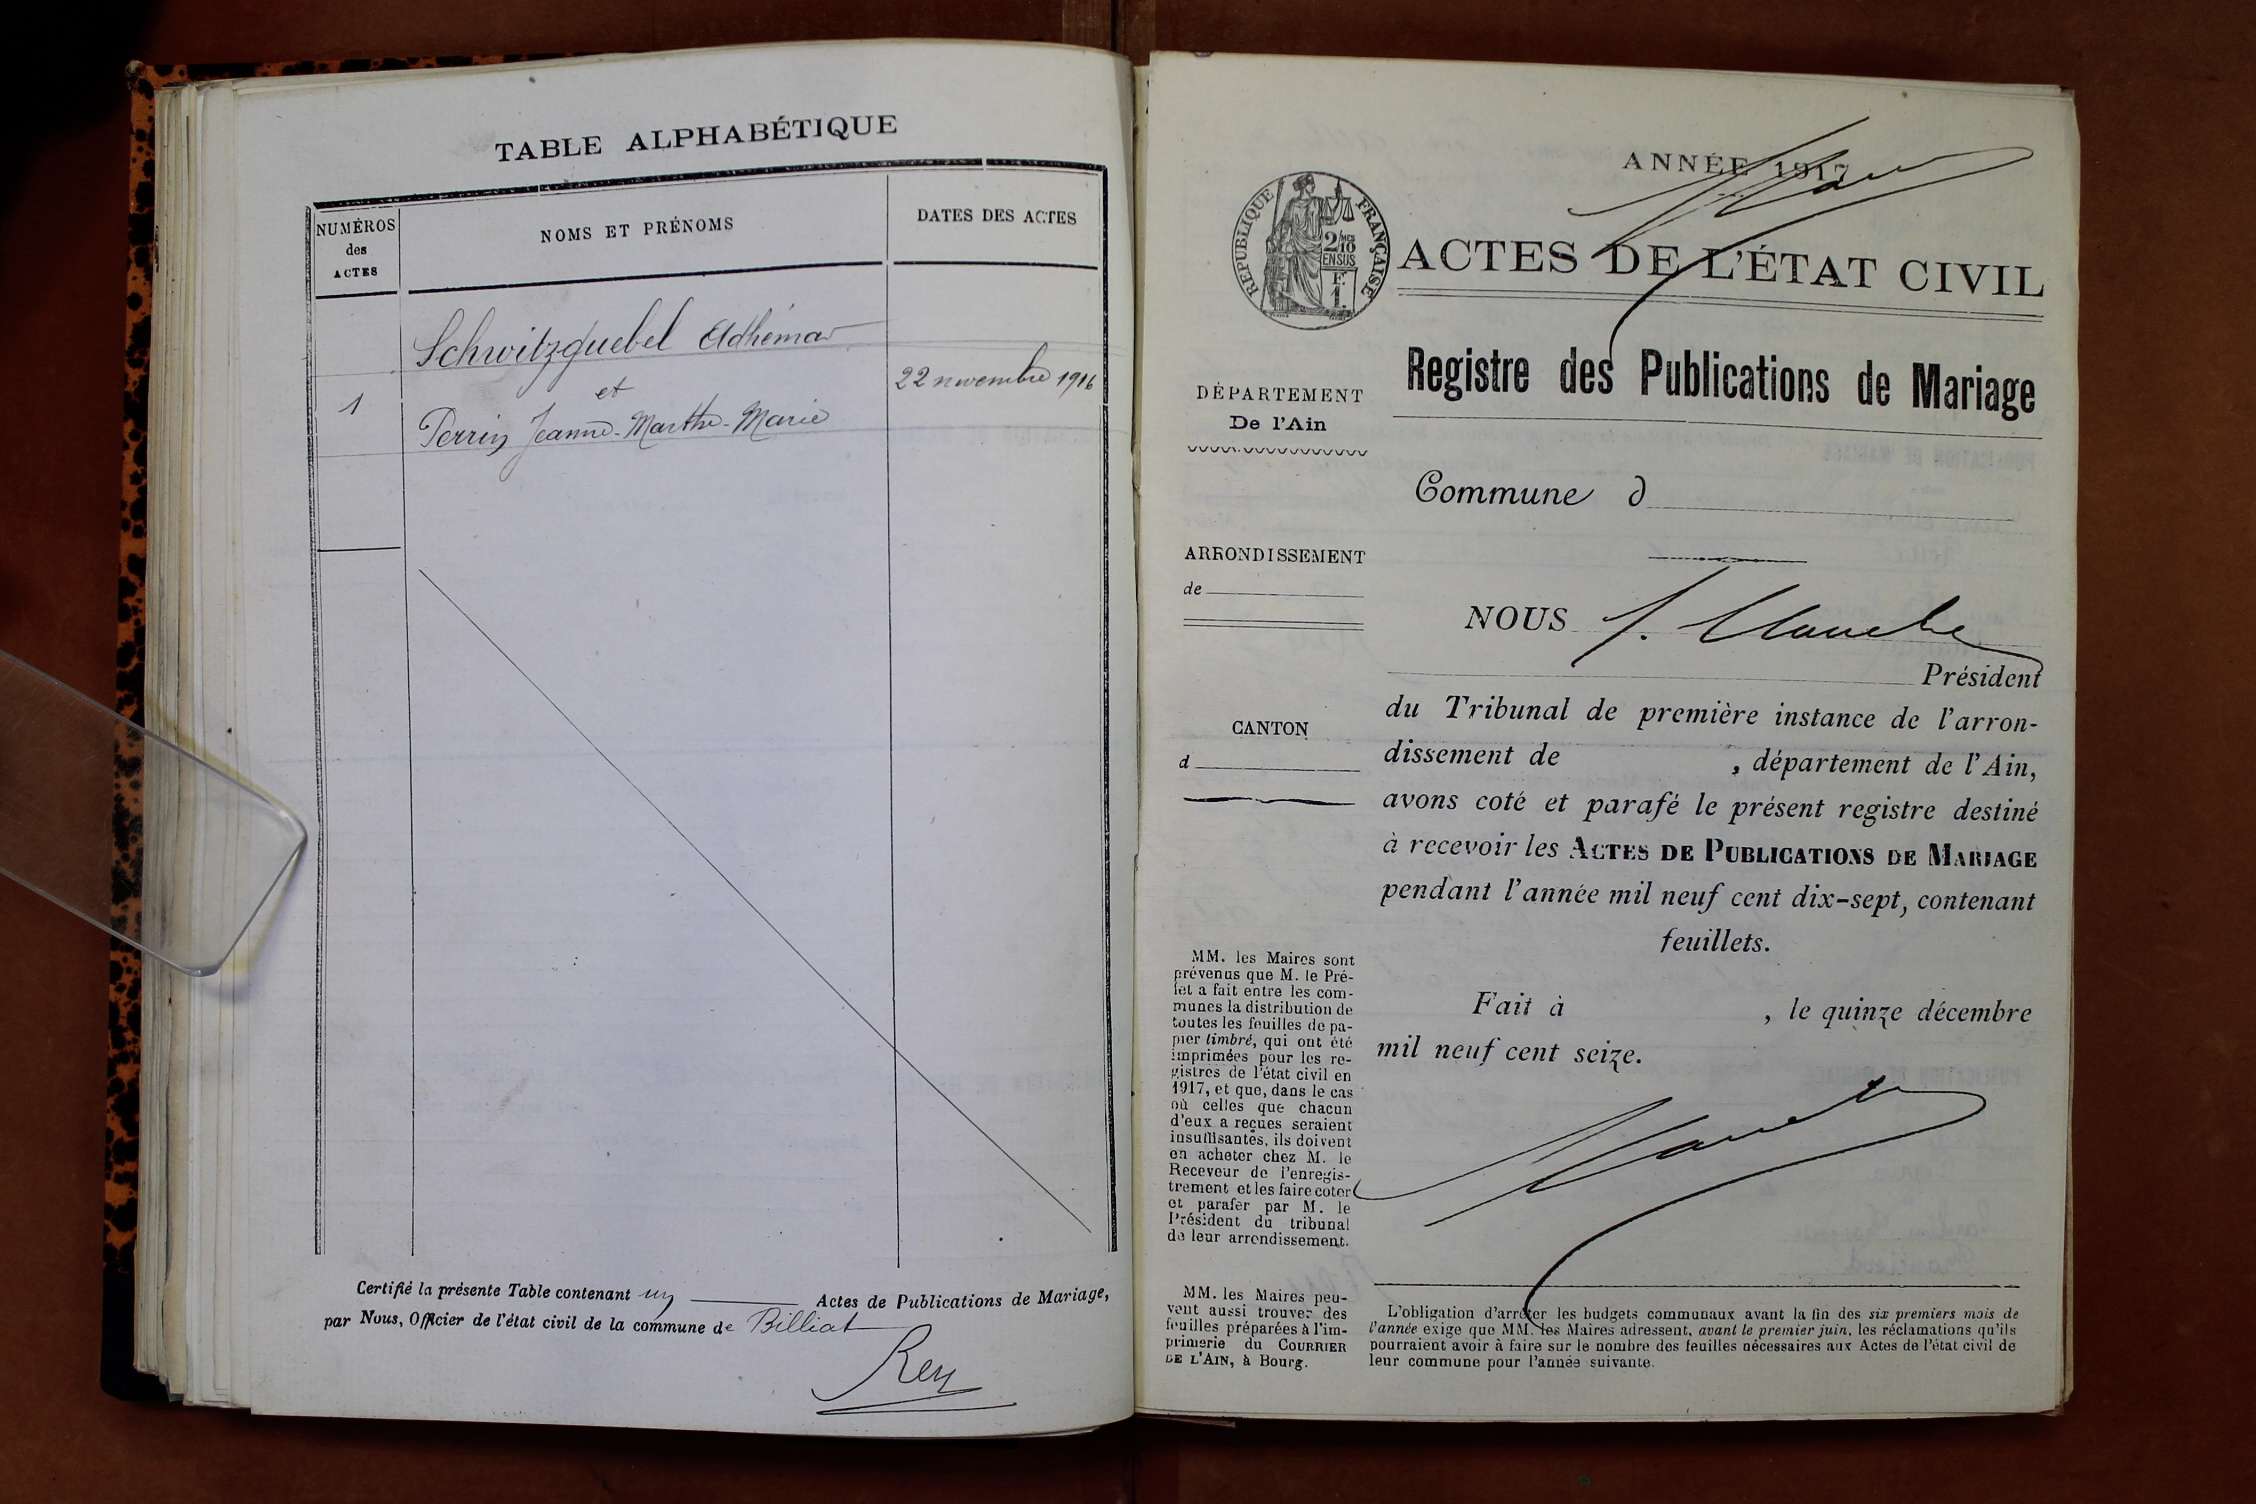 TABLE ALPHABÉTIQUE
NUMÉROS
des
ACTES
NOMS ET PRÉNOMS
DATES DES ACTES
Schwitzguebel Adhémar
et
1
Perrin Jeanne-Marthe-Marie
22 novembre 1916
Certifié la présente Table contenant un Actes de Publications de Mariage,
par Nous, Officier de l'état civil de la commune de Billiat
Rey
ANNÉE 1917
RÉPUBLIQUE FRANÇAISE
2/10 MES
EN SUS
F.
1.
ACTES DE L'ÉTAT CIVIL
Registre des Publications de Mariage
DÉPARTEMENT
De l'Ain
Commune d
ARRONDISSEMENT
de
CANTON
d
NOUS
Président
du Tribunal de première instance de l'arron-
dissement de , département de l'Ain,
avons coté et parafé le présent registre destiné
à recevoir les ACTES DE PUBLICATIONS DE MARIAGE
pendant l'année mil neuf cent dix-sept, contenant
feuillets.
Fait à , le quinze décembre
mil neuf cent seize.
MM. les Maires sont
prévenus que M. le Pré-
fet a fait entre les com-
munes la distribution de
toutes les feuilles de pa-
pier timbré, qui ont été
imprimées pour les re-
gistres de l'état civil en
1917, et que, dans le cas
où celles que chacun
d'eux a reçues seraient
insuffisantes, ils doivent
en acheter chez M. le
Receveur de l'enregis-
trement et les faire coter
et parafer par M. le
Président du tribunal
de leur arrondissement.
MM. les Maires peu-
vent aussi trouver des
feuilles préparées à l'im-
primerie du COURRIER
DE L'AIN, à Bourg.
L'obligation d'arrêter les budgets communaux avant la fin des six premiers mois de
l'année exige que MM. les Maires adressent, avant le premier juin, les réclamations qu'ils
pourraient avoir à faire sur le nombre des feuilles nécessaires aux Actes de l'état civil de
leur commune pour l'année suivante.